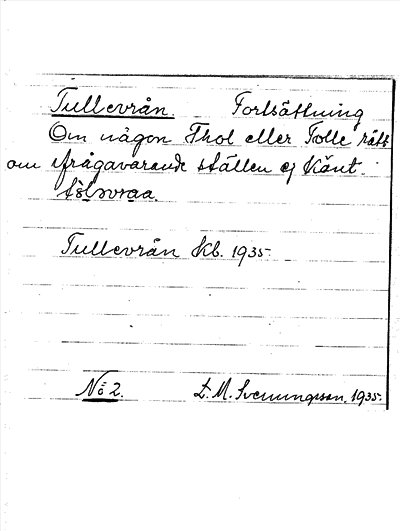 Tullevrån. Fortsättning
Om någon Thol eller Tolle rätts
om ifrågavarande ställen ej känt.
Tullevrån Kb. 1935
No 2. L. M. Svenungsson. 1935.